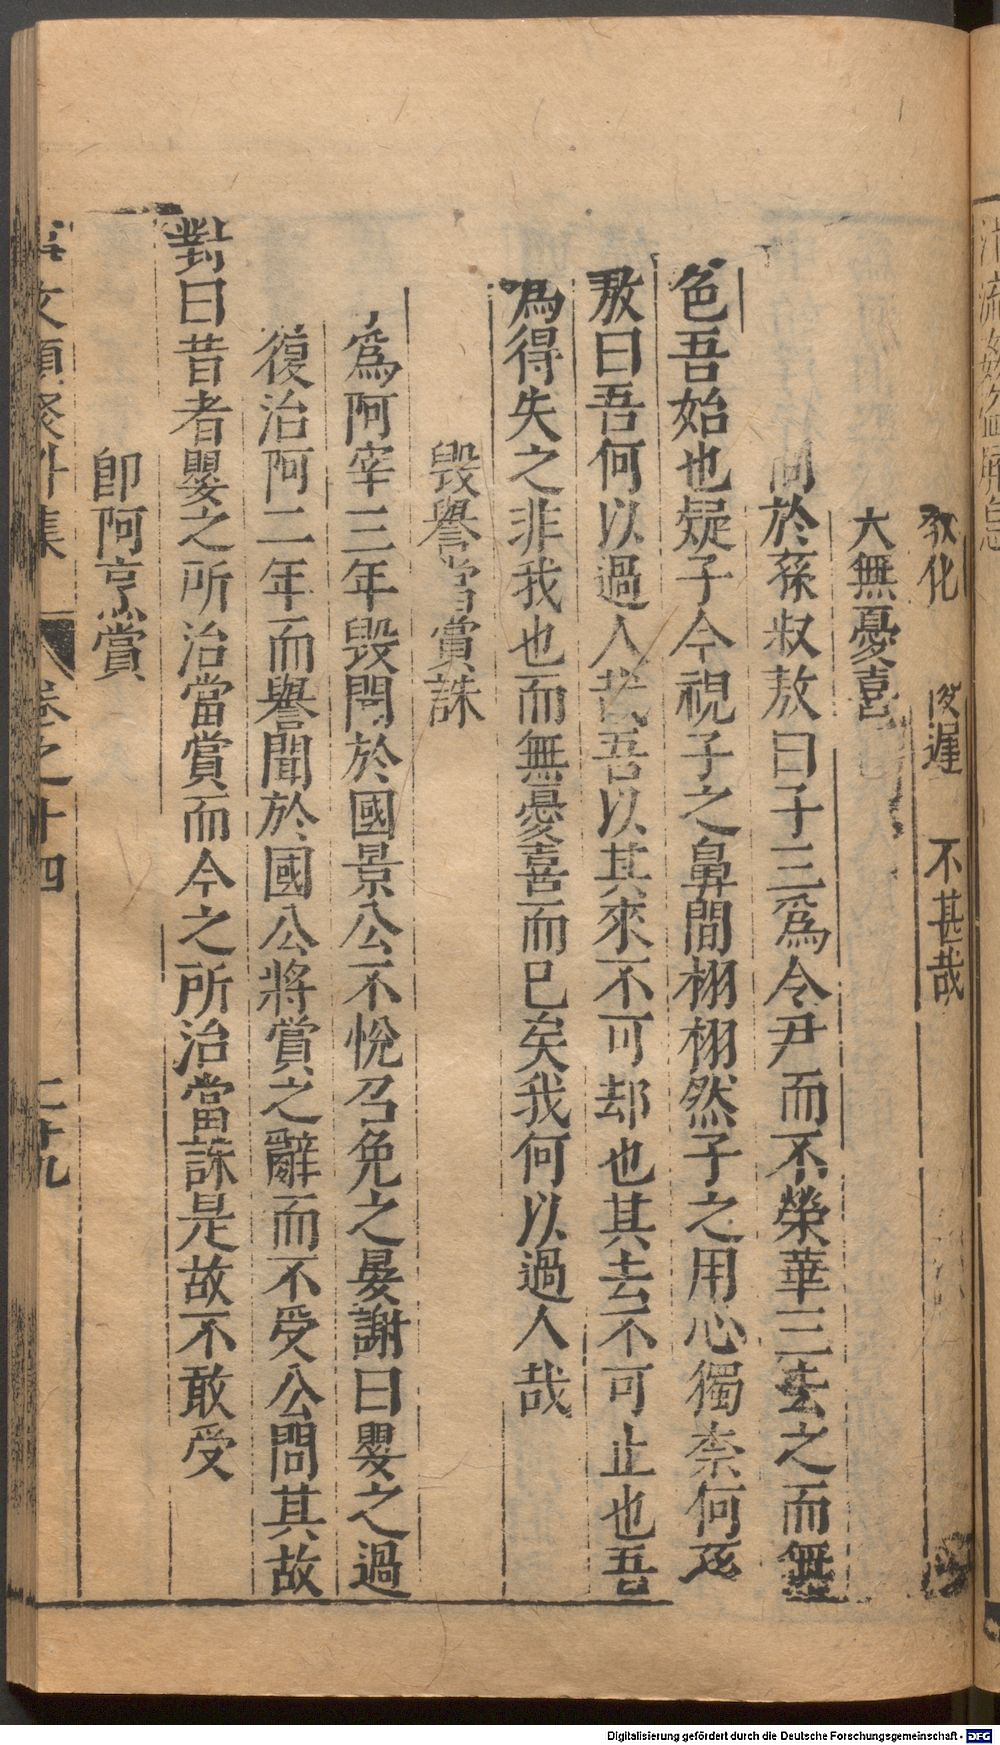 教化 後遲 不甚哉
大無憂喜
問於孫叔敖曰子三爲令尹而不榮華三去之而無
色吾始也疑子今視子之鼻間栩栩然子之用心獨柰何孫
敖曰吾何以過人哉吾以其來不可却也其去不可止也吾
爲得失之非我也而無憂喜而已矣我何以過人哉
毁譽當賞誅
爲阿宰三年毁聞於國景公不悅召免之晏謝曰嬰之過
復治阿二年而譽聞於國公將賞之辭而不受公問其故
對曰昔者嬰之所治當賞而今之所治當誅是故不敢受
即阿烹賞
事文類聚外集 卷之十四 二十九
Digitalisierung gefördert durch die Deutsche Forschungsgemeinschaft - DFG